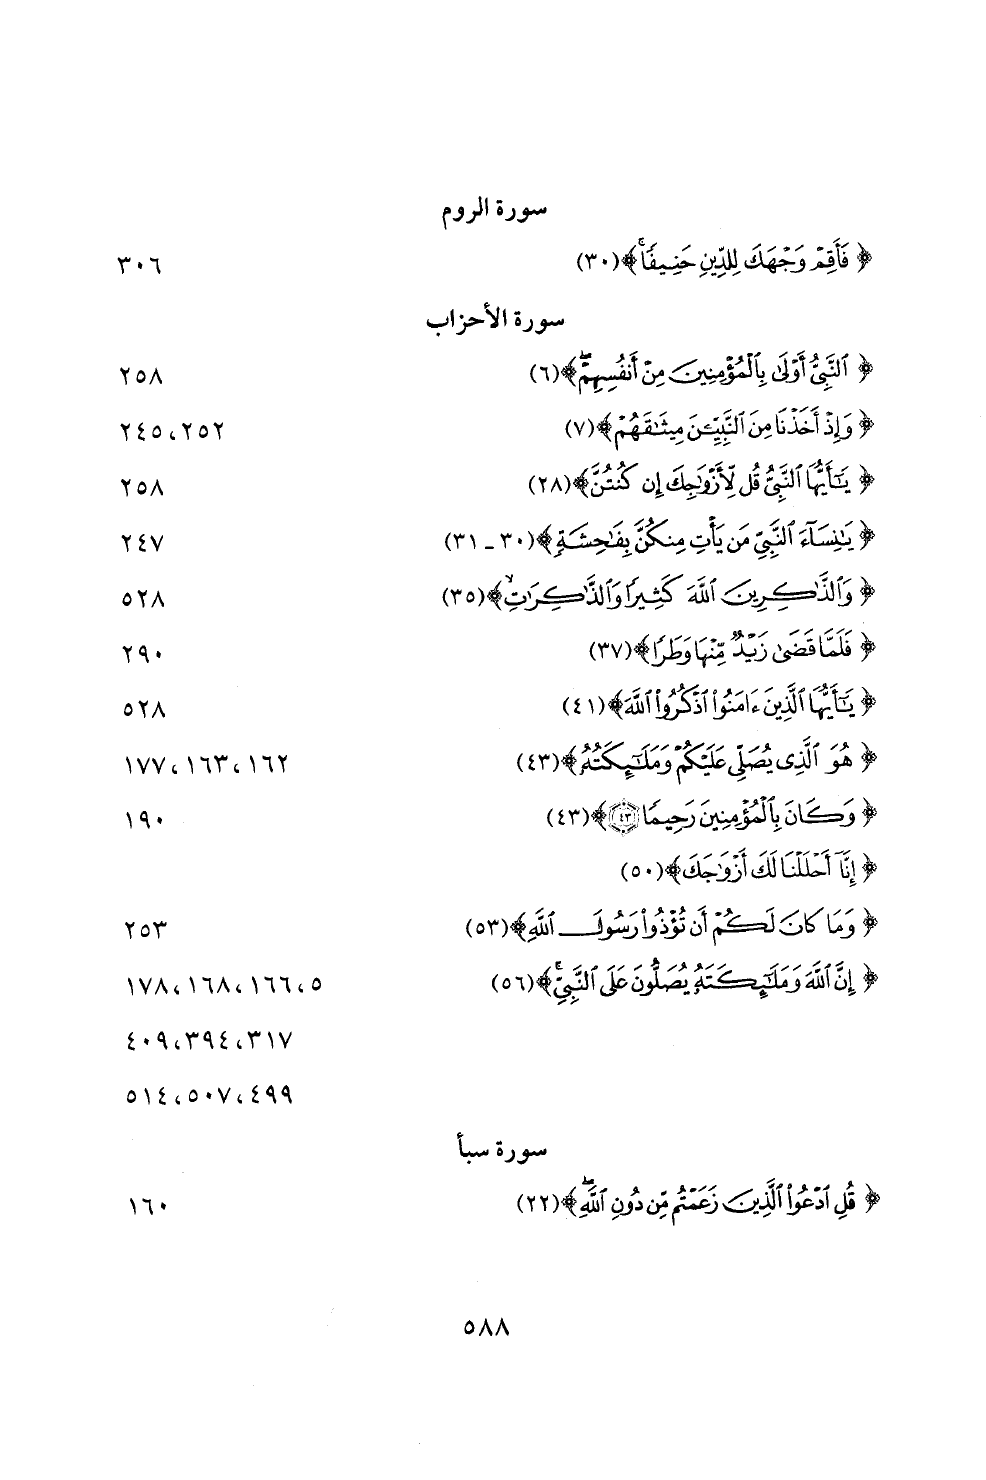 سورة الروم
﴿ فَأَقِمْ وَجْهَكَ لِلدِّينِ حَنِيفًا ۚ ﴾ (٣٠) ٣٠٦
سورة الأحزاب
﴿ ٱلنَّبِيُّ أَوْلَىٰ بِٱلْمُؤْمِنِينَ مِنْ أَنفُسِهِمْ ۖ ﴾ (٦) ٢٥٨
﴿ وَإِذْ أَخَذْنَا مِنَ ٱلنَّبِيِّـۧنَ مِيثَٰقَهُمْ ﴾ (٧) ٢٤٥، ٢٥٢
﴿ يَٰٓأَيُّهَا ٱلنَّبِيُّ قُل لِّأَزْوَٰجِكَ إِن كُنتُنَّ ﴾ (٢٨) ٢٥٨
﴿ يَٰنِسَآءَ ٱلنَّبِيِّ مَن يَأْتِ مِنكُنَّ بِفَٰحِشَةٍ ﴾ (٣٠ - ٣١) ٢٤٧
﴿ وَٱلذَّٰكِرِينَ ٱللَّهَ كَثِيرًا وَٱلذَّٰكِرَٰتِ ۙ ﴾ (٣٥) ٥٢٨
﴿ فَلَمَّا قَضَىٰ زَيْدٌ مِّنْهَا وَطَرًا ﴾ (٣٧) ٢٩٠
﴿ يَٰٓأَيُّهَا ٱلَّذِينَ ءَامَنُوا۟ ٱذْكُرُوا۟ ٱللَّهَ ﴾ (٤١) ٥٢٨
﴿ هُوَ ٱلَّذِى يُصَلِّى عَلَيْكُمْ وَمَلَٰٓئِكَتُهُۥ ﴾ (٤٣) ١٦٢، ١٦٣، ١٧٧
﴿ وَكَانَ بِٱلْمُؤْمِنِينَ رَحِيمًا ٤٣ ﴾ (٤٣) ١٩٠
﴿ إِنَّآ أَحْلَلْنَا لَكَ أَزْوَٰجَكَ ﴾ (٥٠)
﴿ وَمَا كَانَ لَكُمْ أَن تُؤْذُوا۟ رَسُولَ ٱللَّهِ ﴾ (٥٣) ٢٥٣
﴿ إِنَّ ٱللَّهَ وَمَلَٰٓئِكَتَهُۥ يُصَلُّونَ عَلَى ٱلنَّبِيِّ ۚ ﴾ (٥٦) ٥، ١٦٦، ١٦٨، ١٧٨
٣١٧، ٣٩٤، ٤٠٩
٤٩٩، ٥٠٧، ٥١٤
سورة سبأ
﴿ قُلِ ٱدْعُوا۟ ٱلَّذِينَ زَعَمْتُم مِّن دُونِ ٱللَّهِ ۖ ﴾ (٢٢) ١٦٠
٥٨٨